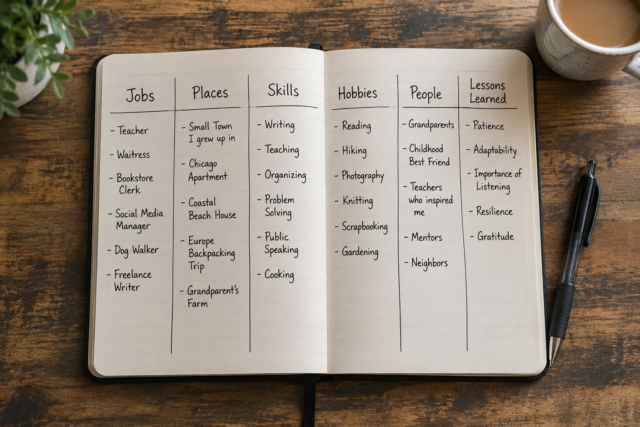 Jobs
- Teacher
- Waitress
- Bookstore
Clerk
- Social Media
Manager
- Dog Walker
- Freelance
Writer
Places
- Small Town
I grew up in
- Chicago
Apartment
- Coastal
Beach House
- Europe
Backpacking
Trip
- Grandparent's
Farm
Skills
- Writing
- Teaching
- Organizing
- Problem
Solving
- Public
Speaking
- Cooking
Hobbies
- Reading
- Hiking
- Photography
- Knitting
- Scrapbooking
- Gardening
People
- Grandparents
- Childhood
Best Friend
- Teachers
who inspired
me
- Mentors
- Neighbors
Lessons
Learned
- Patience
- Adaptability
- Importance of
Listening
- Resilience
- Gratitude